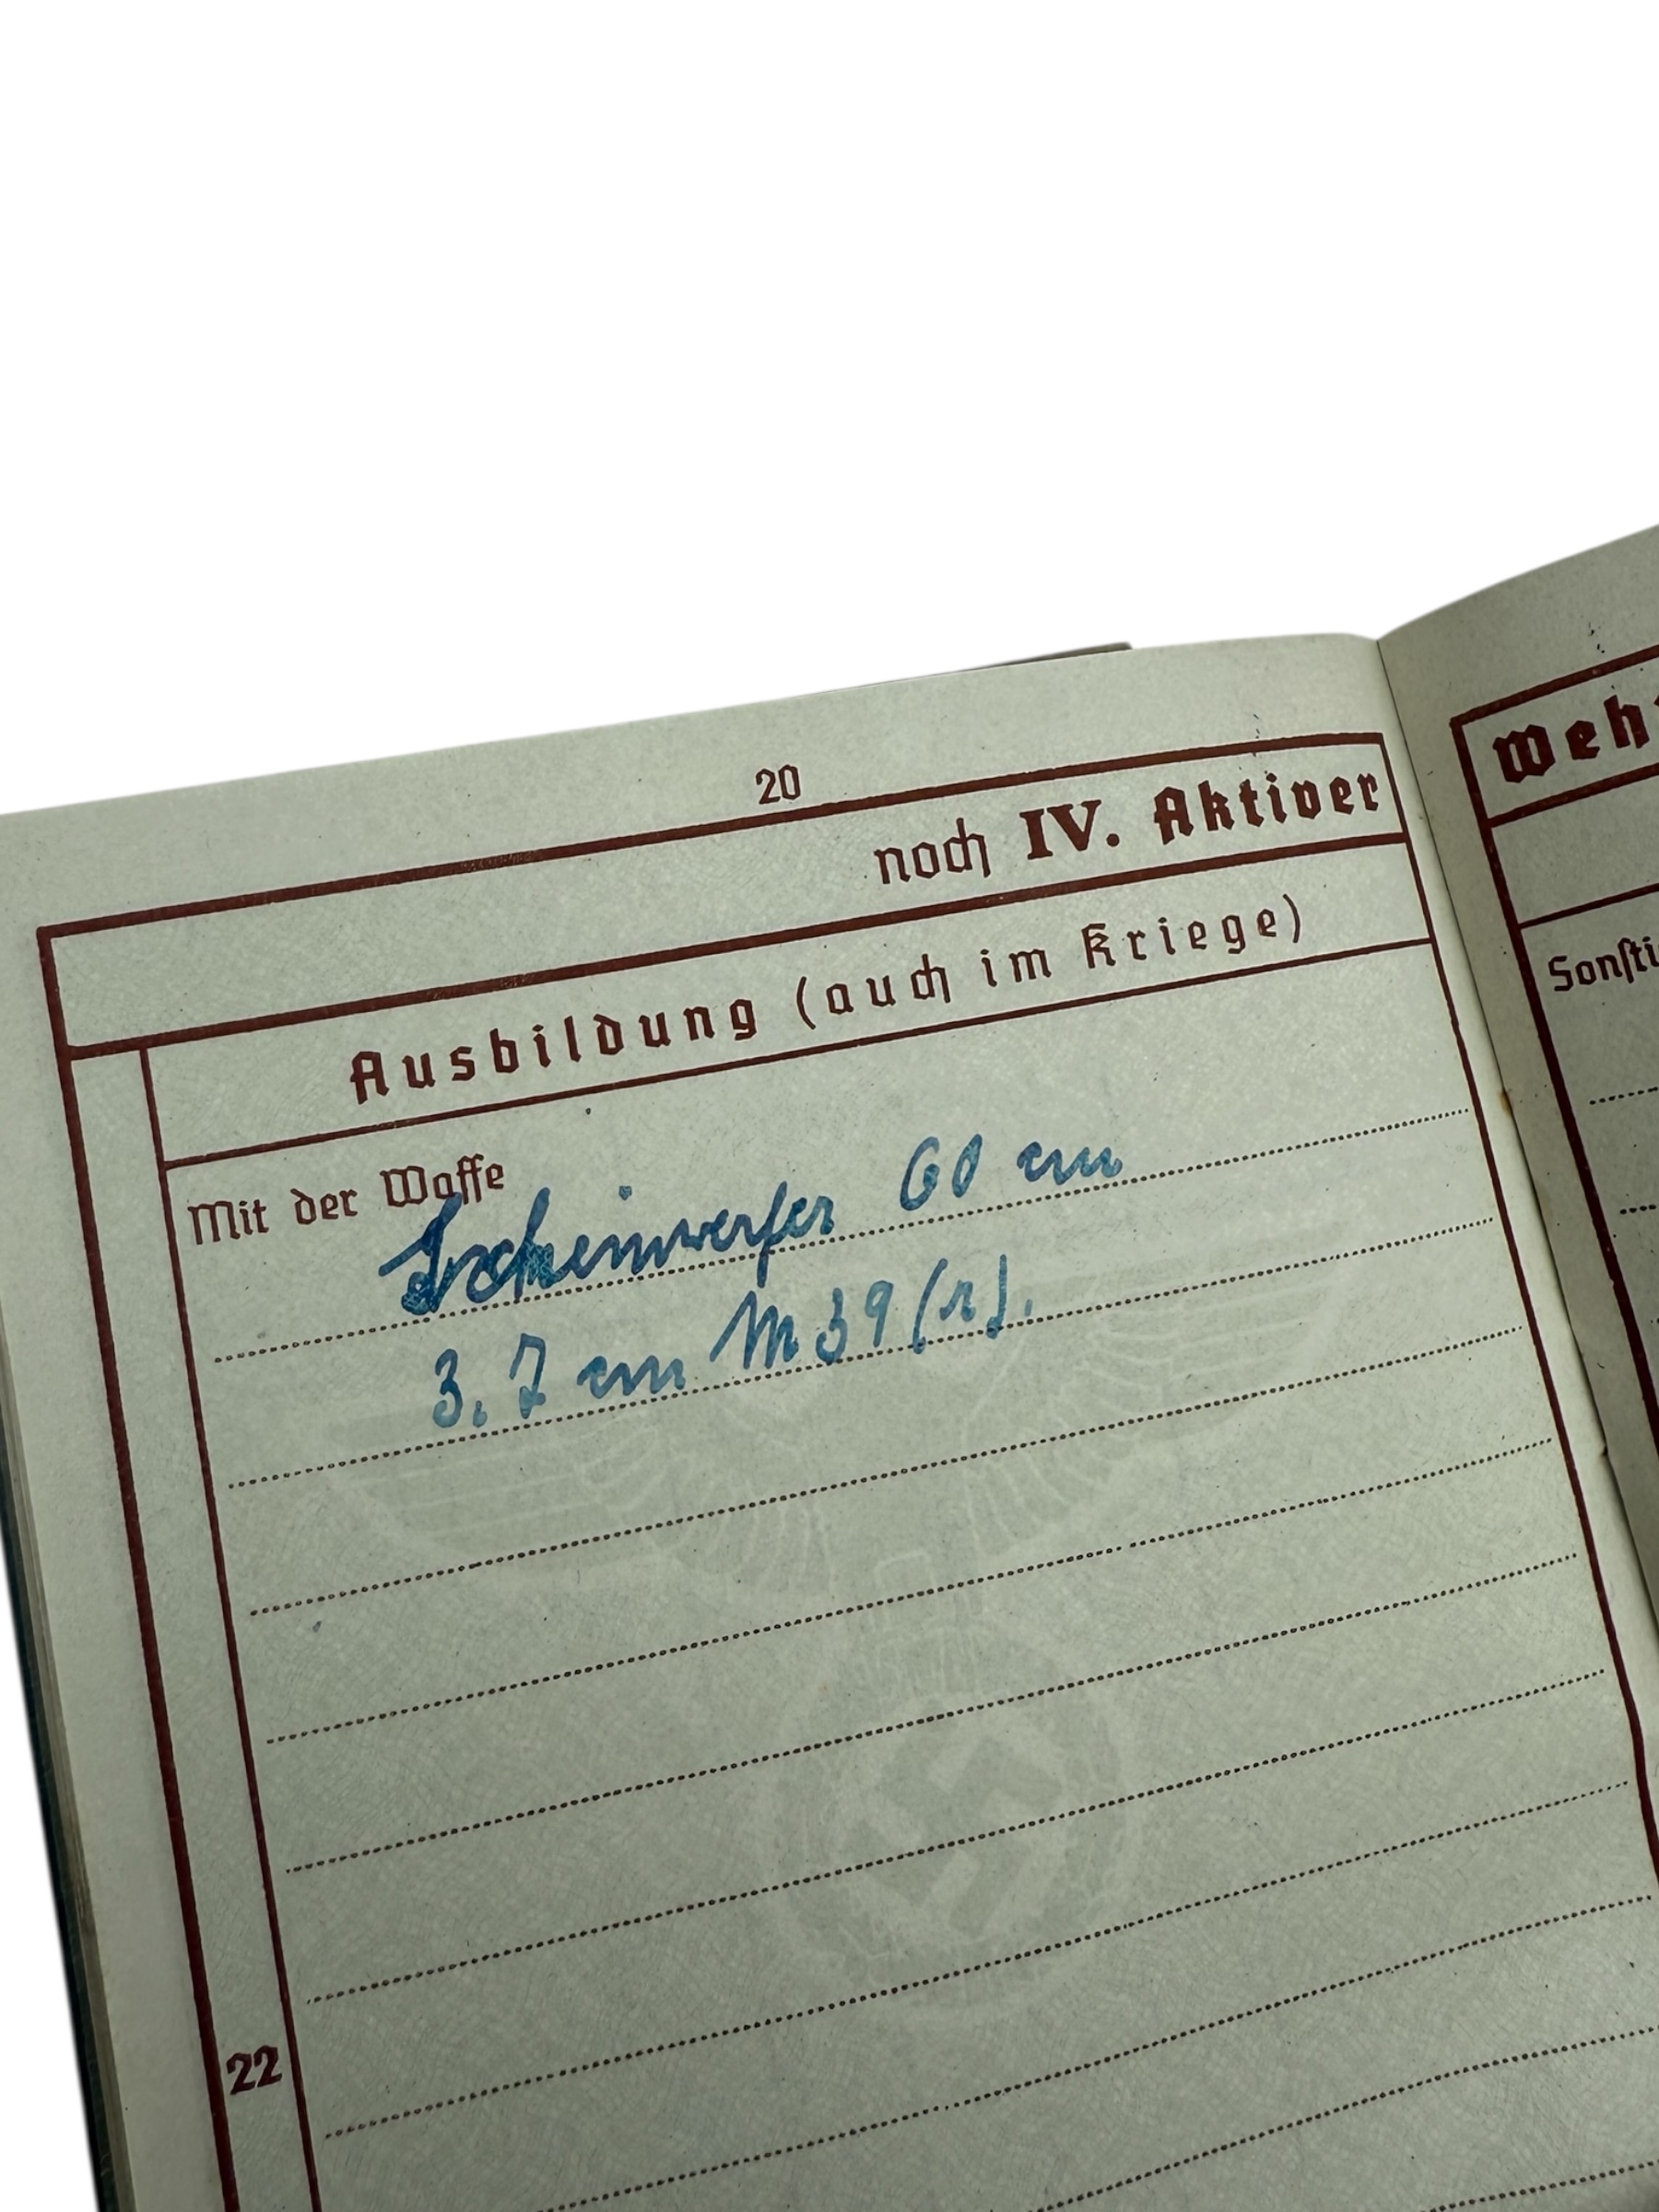 20
noch IV. Aktiver
Ausbildung (auch im Kriege)
Mit der Waffe
Scheinwerfer 60 cm
3,7 cm M 39 (r).
22
Weh
Sonsti